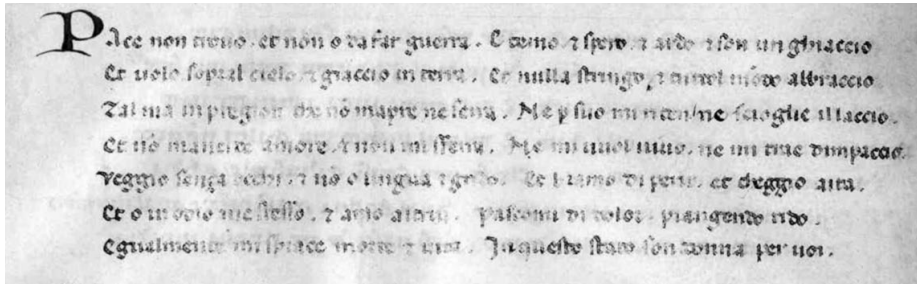 PAce non trouo. et non o da far guerra. E temo. ⁊ spero. ⁊ ardo. ⁊ son un ghiaccio
Et uolo sopral cielo. ⁊ giaccio in terra. Et nulla stringo. ⁊ tuttol mōdo abbraccio
Tal ma in pregion che nō mapre ne serra. Ne p suo mi riten ne scioglie il laccio.
Et nō mancide amore. ⁊ non mi sferra. Ne mi uuol uiuo. ne mi trae dimpaccio.
Veggio senza occhi. ⁊ nō o lingua ⁊ grido. Et bramo di perir. et cheggio aita.
Et o in odio me stesso. ⁊ amo altrui. Pascomi di dolor. piangendo rido.
Egualmente mi spiace morte ⁊ uita. In questo stato son donna per uoi.